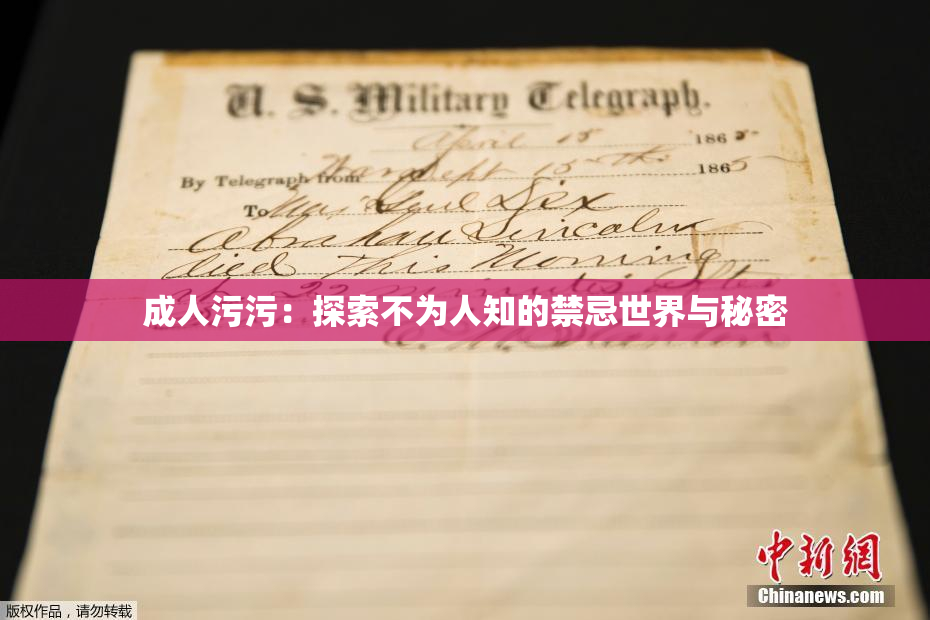 U. S. Military Telegraph.
April 15 1865
By Telegraph from War Dept 15th 1865
To Maj Genl Dix
Abraham Lincoln
died This Morning
22 minutes after
成人污污：探索不为人知的禁忌世界与秘密
E. M. Stanton
中新网
Chinanews.com
版权作品，请勿转载